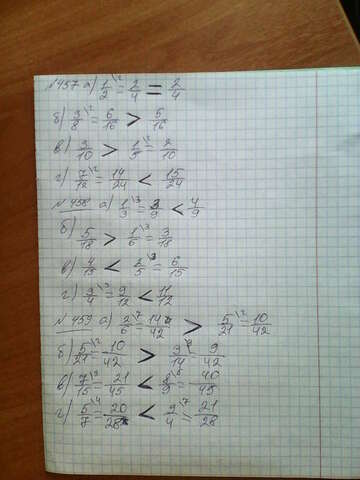 №457 а) 1/2\2 = 2/4 = 2/4
б) 3/8\2 = 6/16 > 5/16
в) 3/10 > 1/5\2 = 2/10
г) 7/12\2 = 14/24 < 15/24
№458 а) 1/3\3 = 3/9 < 4/9
б) 5/18 > 1/6\3 = 3/18
в) 4/15 < 2/5\3 = 6/15
г) 3/4\3 = 9/12 < 11/12
№459 а) 2/6\7 = 14/42 > 5/21\2 = 10/42
б) 5/21\2 = 10/42 > 3/14 9/42
в) 7/15\3 = 21/45 < 8/9\5 = 40/45
г) 5/7\4 = 20/28 < 21/28